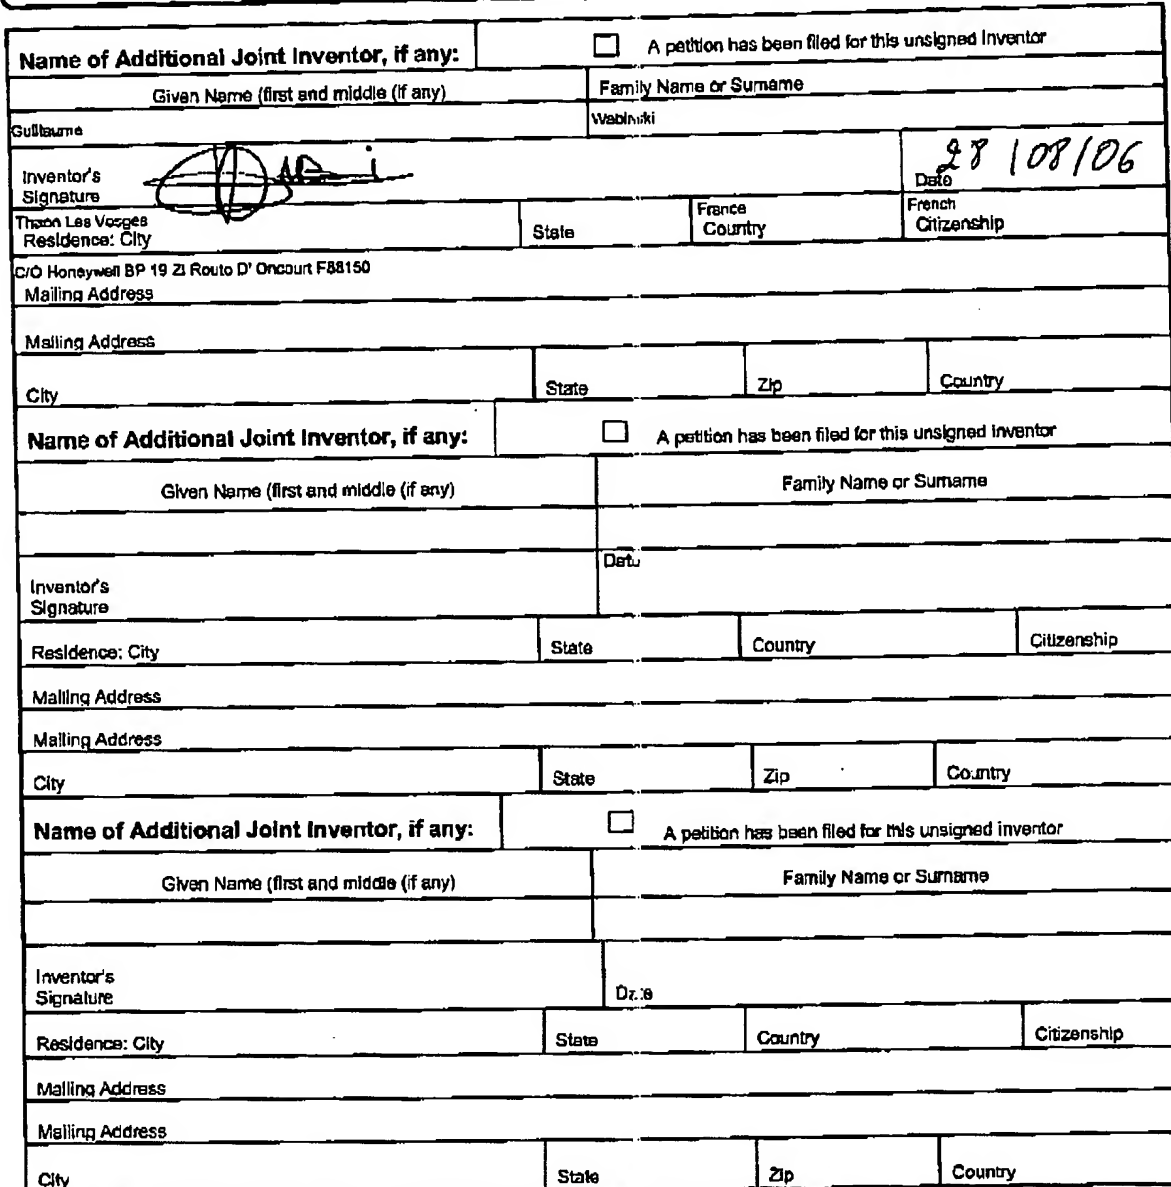 Name of Additional Joint Inventor, if any: A petition has been filed for this unsigned Inventor
Given Name (first and middle (if any) Family Name or Surname
Guillaume
Inventor's
Signature
Date 28/08/06
Thaon Les Vosges France French
Residence: City State Country Citizenship
C/O Honeywell BP 19 ZI Routo D' Oncourt F88150
Mailing Address
Mailing Address
City State Zip Country
Name of Additional Joint Inventor, if any: A petition has been filed for this unsigned inventor
Given Name (first and middle (if any) Family Name or Surname
Date
Inventor's
Signature
Residence: City State Country Citizenship
Mailing Address
Mailing Address
City State Zip Country
Name of Additional Joint Inventor, if any: A petition has been filed for this unsigned inventor
Given Name (first and middle (if any) Family Name or Surname
Inventor's
Signature Date
Residence: City State Country Citizenship
Mailing Address
Mailing Address
City State Zip Country